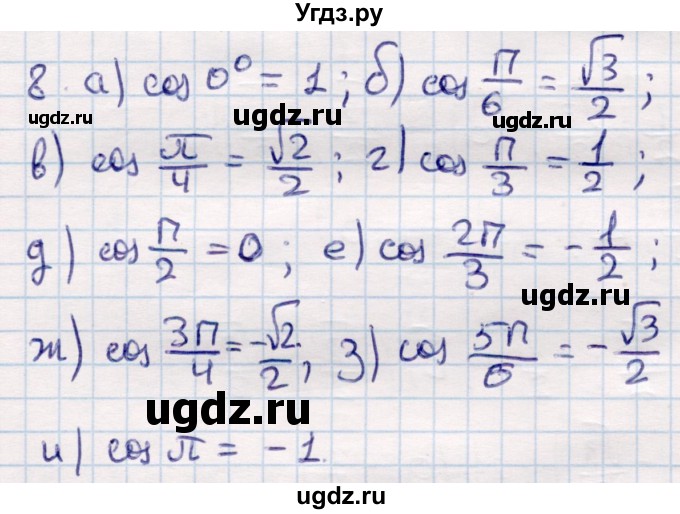 Угдз.ру
8. а) cos 0° = 1; б) cos π/6 = √3/2;
ugdz.ru ugdz.ru ugdz.ru
в) cos π/4 = √2/2; г) cos π/3 = 1/2;
д) cos π/2 = 0; е) cos 2π/3 = -1/2;
ugdz.ru
ж) cos 3π/4 = -√2/2; з) cos 5π/6 = -√3/2
ugdz.ru
и) cos π = -1.
ugdz.ru